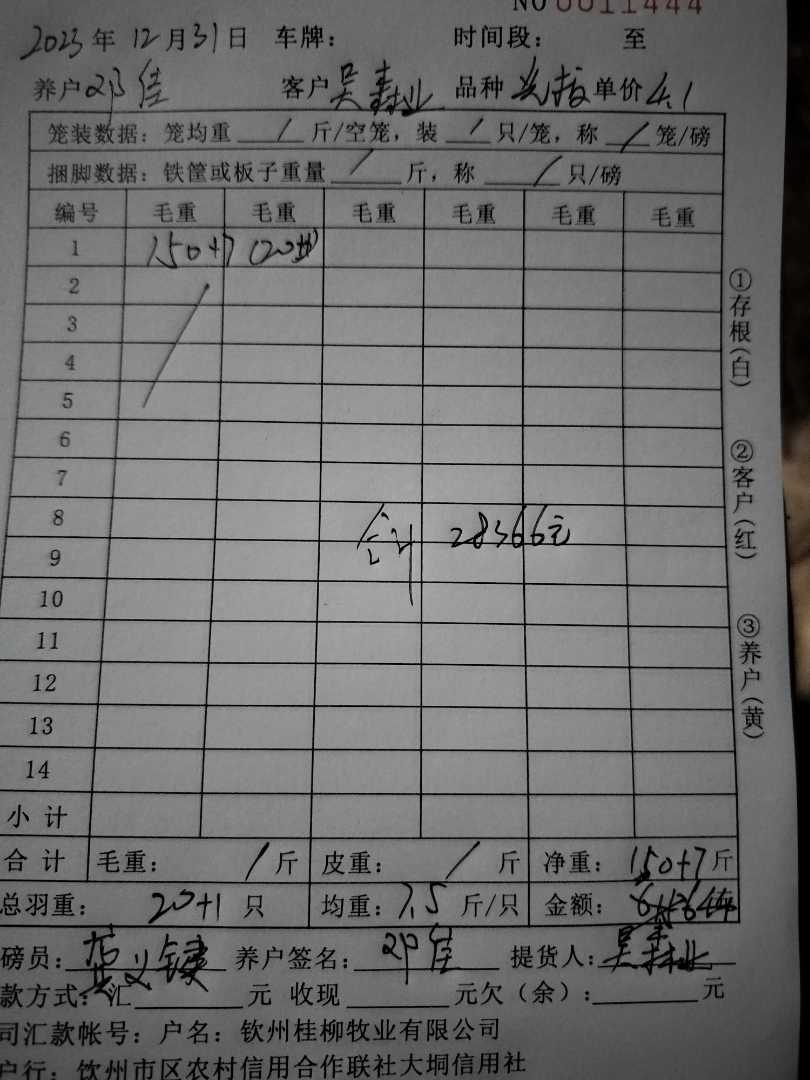 NO 0011444
2023年12月31日 车牌： 时间段： 至
养户 邓佳 客户 吴森业 品种 单价 4.1
笼装数据：笼均重 / 斤/空笼，装 / 只/笼，称 / 笼/磅
捆脚数据：铁筐或板子重量 / 斤，称 / 只/磅
编号 毛重 毛重 毛重 毛重 毛重 毛重
1 150+7 (20
2
3
4
5
6
7
8
合计 28366元
9
10
11
12
13
14
小计
合计 毛重： / 斤 皮重： / 斤 净重： 150+7 斤
总羽重： 20+1 只 均重： 7.5 斤/只 金额：
磅员： 义键 养户签名： 邓佳 提货人： 吴森业
款方式：汇 元 收现 元欠（余）： 元
司汇款帐号：户名：钦州桂柳牧业有限公司
户行：钦州市区农村信用合作联社大垌信用社
①存根（白）
②客户（红）
③养户（黄）